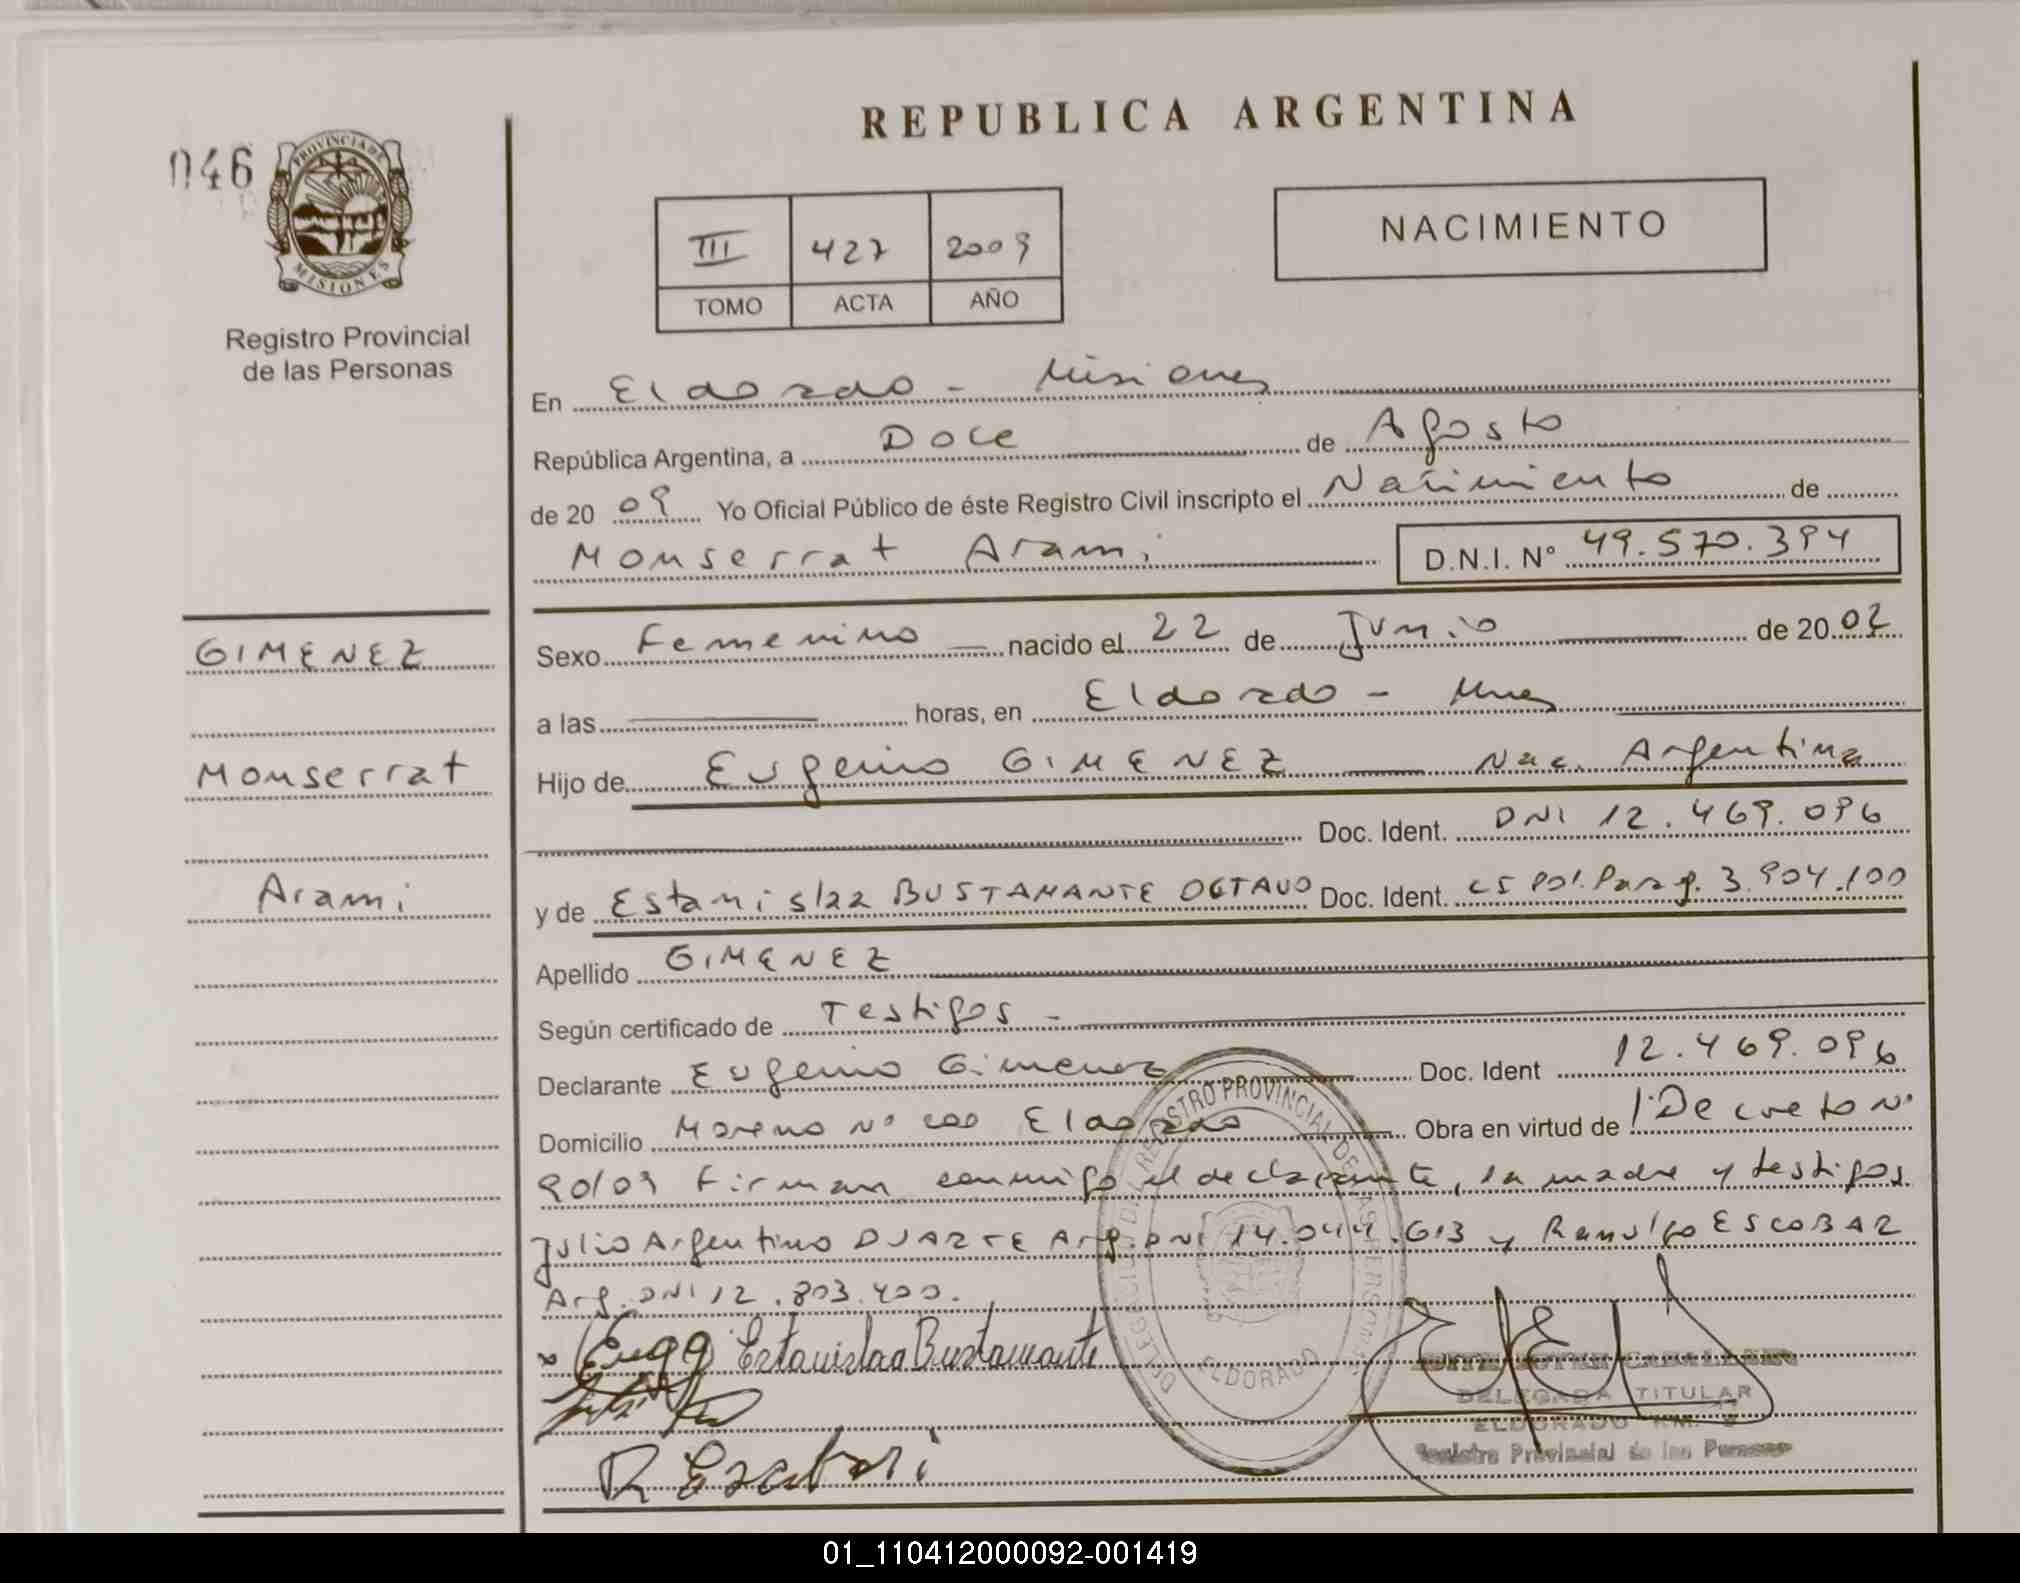 REPUBLICA ARGENTINA
046
PROVINCIA DE
MISIONES
Registro Provincial
de las Personas
III 427 2009
TOMO ACTA AÑO
NACIMIENTO
En Eldorado - Misiones
República Argentina, a Doce de Agosto
de 2009 Yo Oficial Público de éste Registro Civil inscripto el Nacimiento de
Monserrat Arami D.N.I. Nº 49.570.394
GIMENEZ
Monserrat
Arami
Sexo Femenino nacido el 22 de Junio de 2002
a las horas, en Eldorado - Mnes
Hijo de Eugenio GIMENEZ Nac. Argentina
Doc. Ident. DNI 12.469.096
y de Estanislaa BUSTAMANTE OCTAVO Doc. Ident. Pol. Parag. 3.904.100
Apellido GIMENEZ
Según certificado de Testigos -
Declarante Eugenio Gimenez Doc. Ident 12.469.096
Domicilio Moreno Nº Eldorado Obra en virtud de Decreto Nº
90/09 Firman conmigo el declarante, la madre y testigos
Julio Argentino DUARTE Arg. DNI 14.044.613 y Ranulfo ESCOBAR
Arg. DNI 12.803.400.
Estanislaa Bustamante
R Escobar
REGISTRO PROVINCIAL DE LAS PERSONAS
ELDORADO
DELEGADA TITULAR
ELDORADO KM.
Registro Provincial de las Personas
01_110412000092-001419